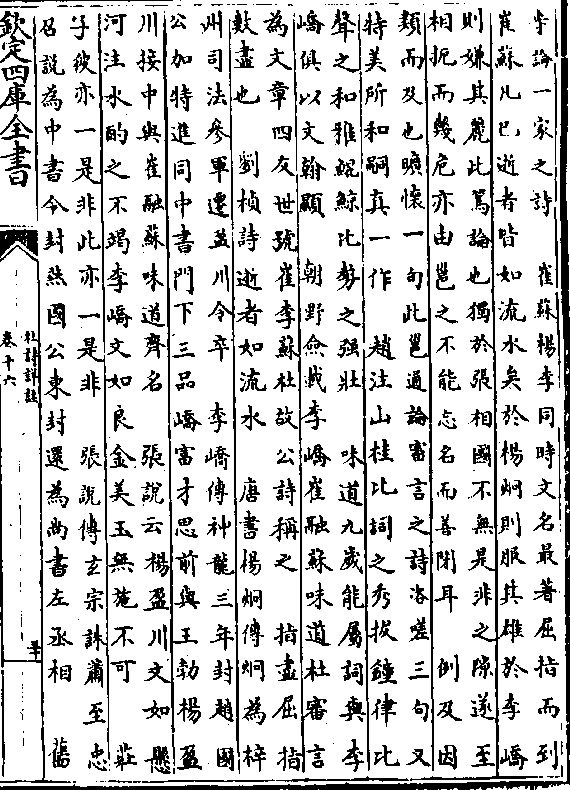 字論一家之詩　崔蘇楊李同時文名最著屈指而到
崔蘇凡已逝者皆如流水矣於楊炯則服其雄於李嶠
則嫌其麗此篤論也獨於張相國不無是非之隙遂至
相扼而幾危亦由邕之不能忘名而善閉耳　例及因
類而及也曠懷一句此邕通論審言之詩洛嗟三句又
特美所和嗣真一作　趙注山桂比詞之秀拔鐘律比
聲之和雅鯤鯨比勢之强壯　味道九歲能屬詞與李
嶠俱以文翰顯　朝野僉載李嶠崔融蘇味道杜審言
為文章四友世號崔李蘇杜故公詩稱之　指盡屈指
數盡也　劉楨詩逝者如流水　唐書楊炯傳炯為梓
州司法參軍遷盈川令卒　李嶠傳神龍三年封趙國
公加特進同中書門下三品嶠富才思前與王勃楊盈
川接中與崔融蘇味道齊名　張說云楊盈川文如懸
河注水酌之不竭李嶠文如良金美玉無施不可　莊
子彼亦一是非此亦一是非　張說傳玄宗誅蕭至忠
召說為中書令封燕國公東封還為尚書左丞相　舊
欽定四庫全書
杜詩詳註
卷十六